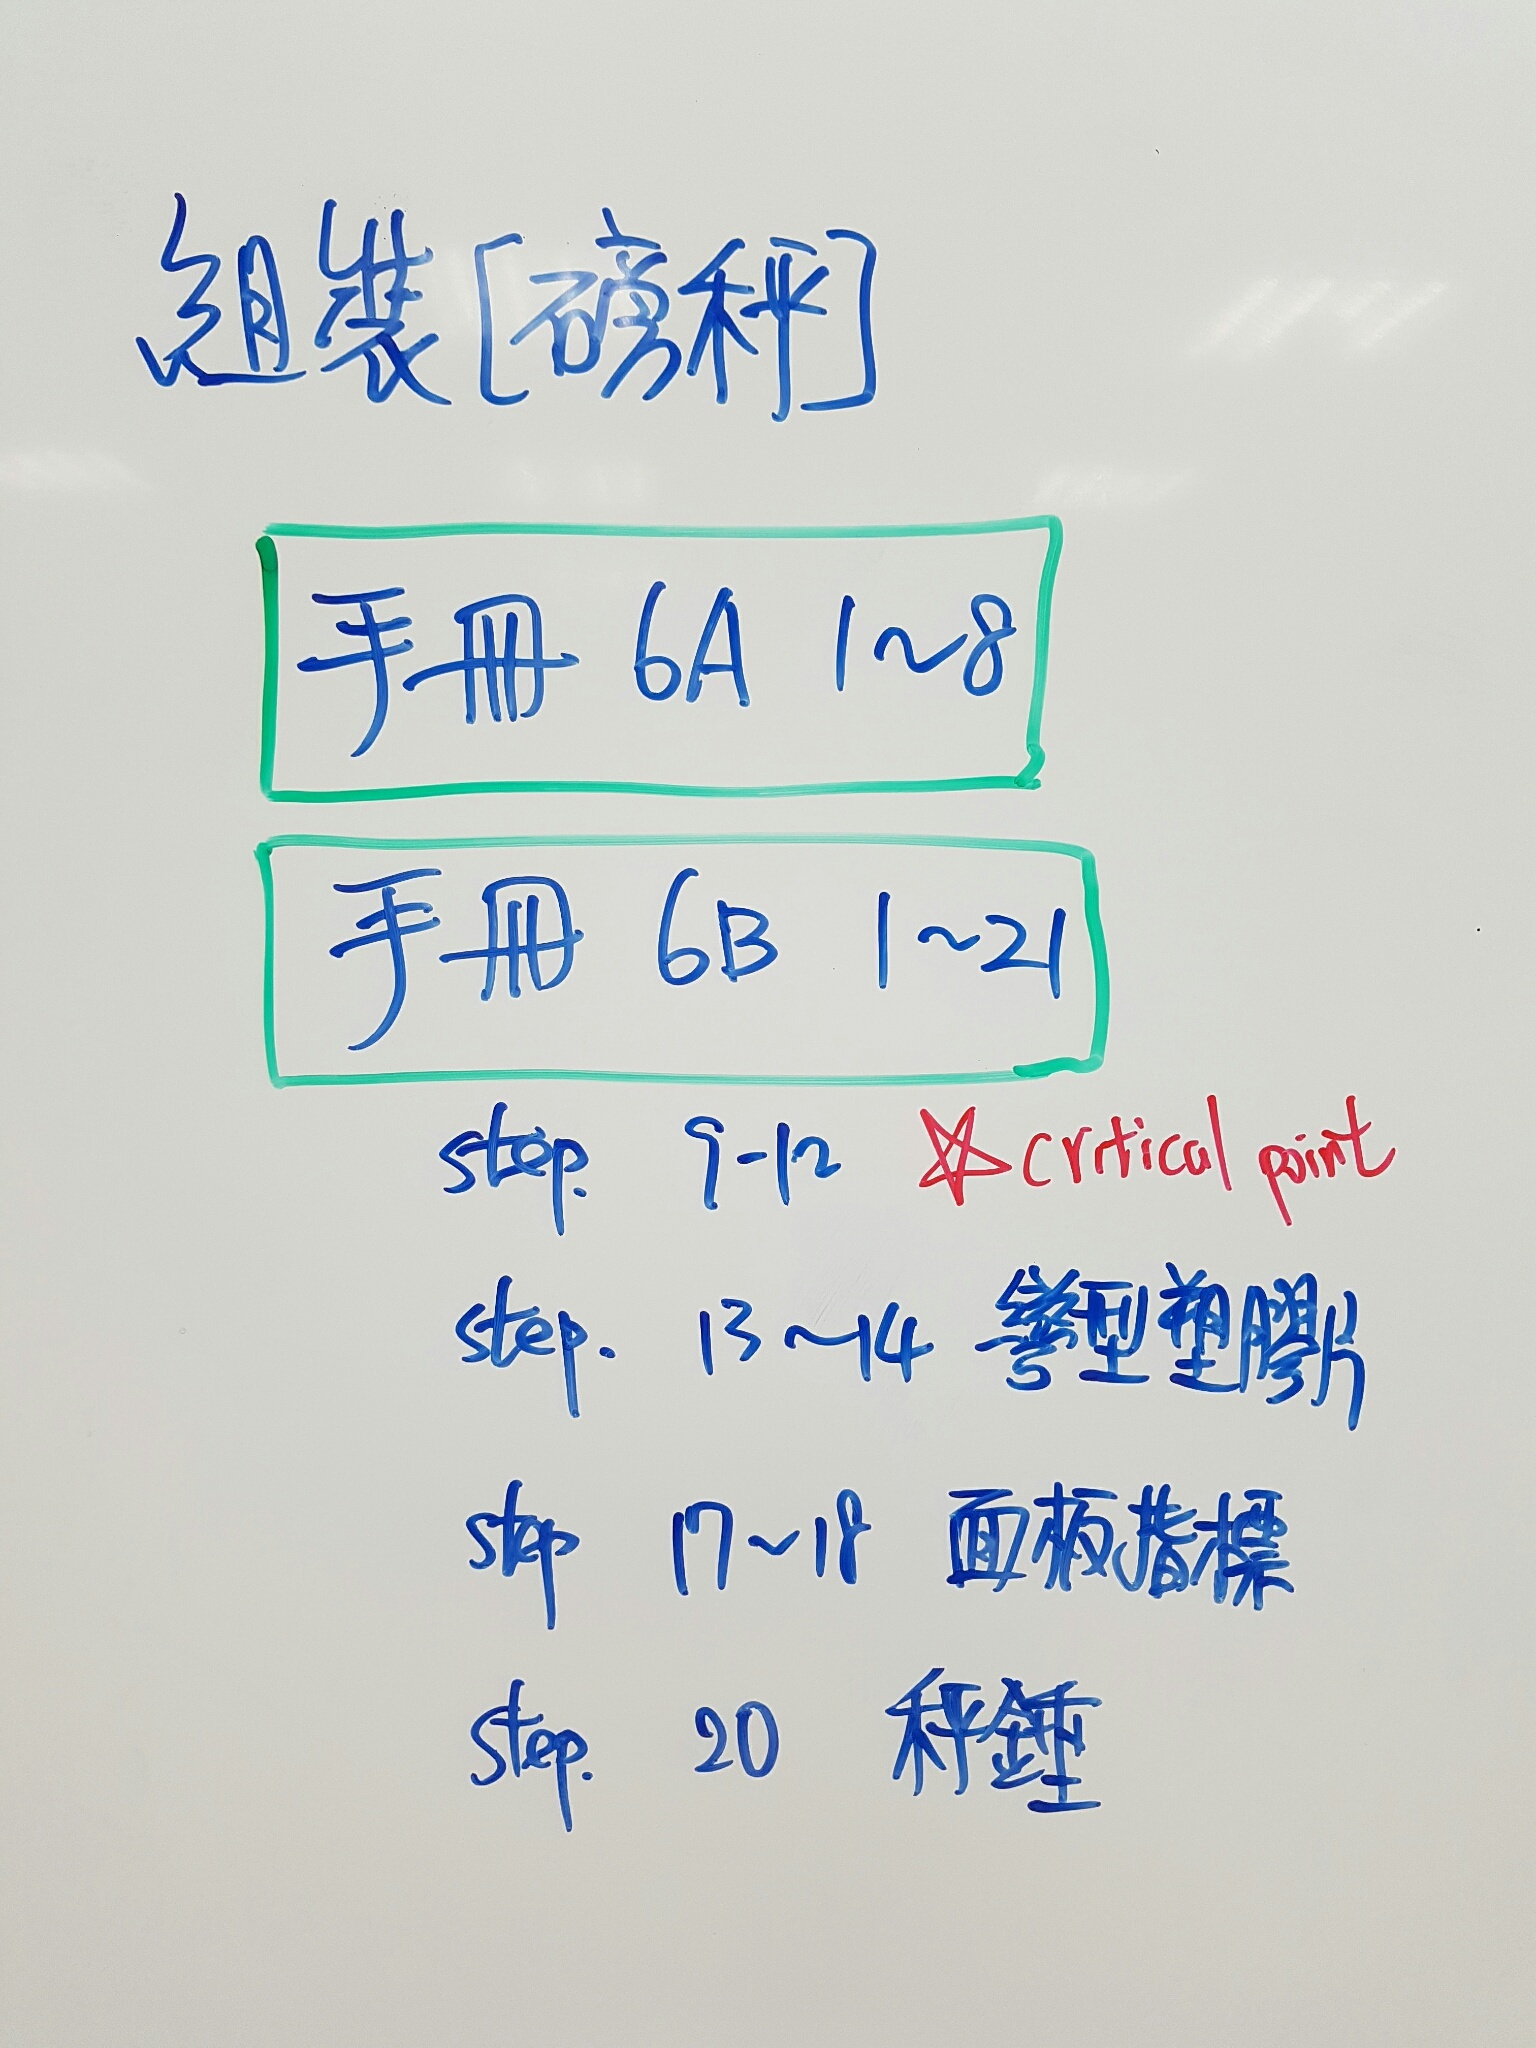 組裝[磅秤]
手冊 6A 1~8
手冊 6B 1~21
step. 9-12 ☆critical point
step. 13~14 彎型塑膠片
step 17~18 面板指標
step. 20 秤錘